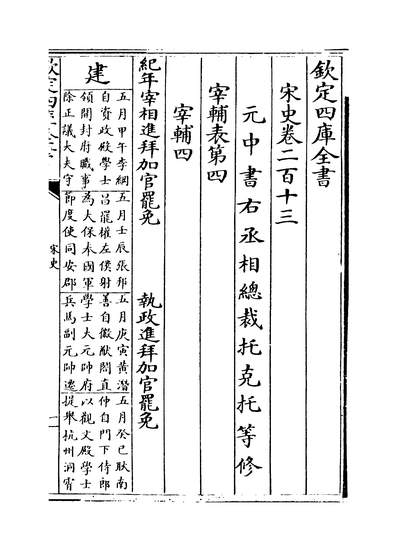 欽定四庫全書
宋史卷二百十三
元中書右丞相總裁托克托等修
宰輔表第四
宰輔四
紀年宰相進拜加官罷免 執政進拜加官罷免
建
五月甲午李綱
自資政殿學士
領開封府職事
除正議大夫守
五月壬辰張邦
昌罷權左僕射
為大保奉國軍
節度使同安郡
五月庚寅黃潛
善自徽猷閣直
學士大元帥府
兵馬副元帥遷
五月癸巳耿南
仲自門下侍郎
以觀文殿學士
提舉杭州洞霄
宋史
一